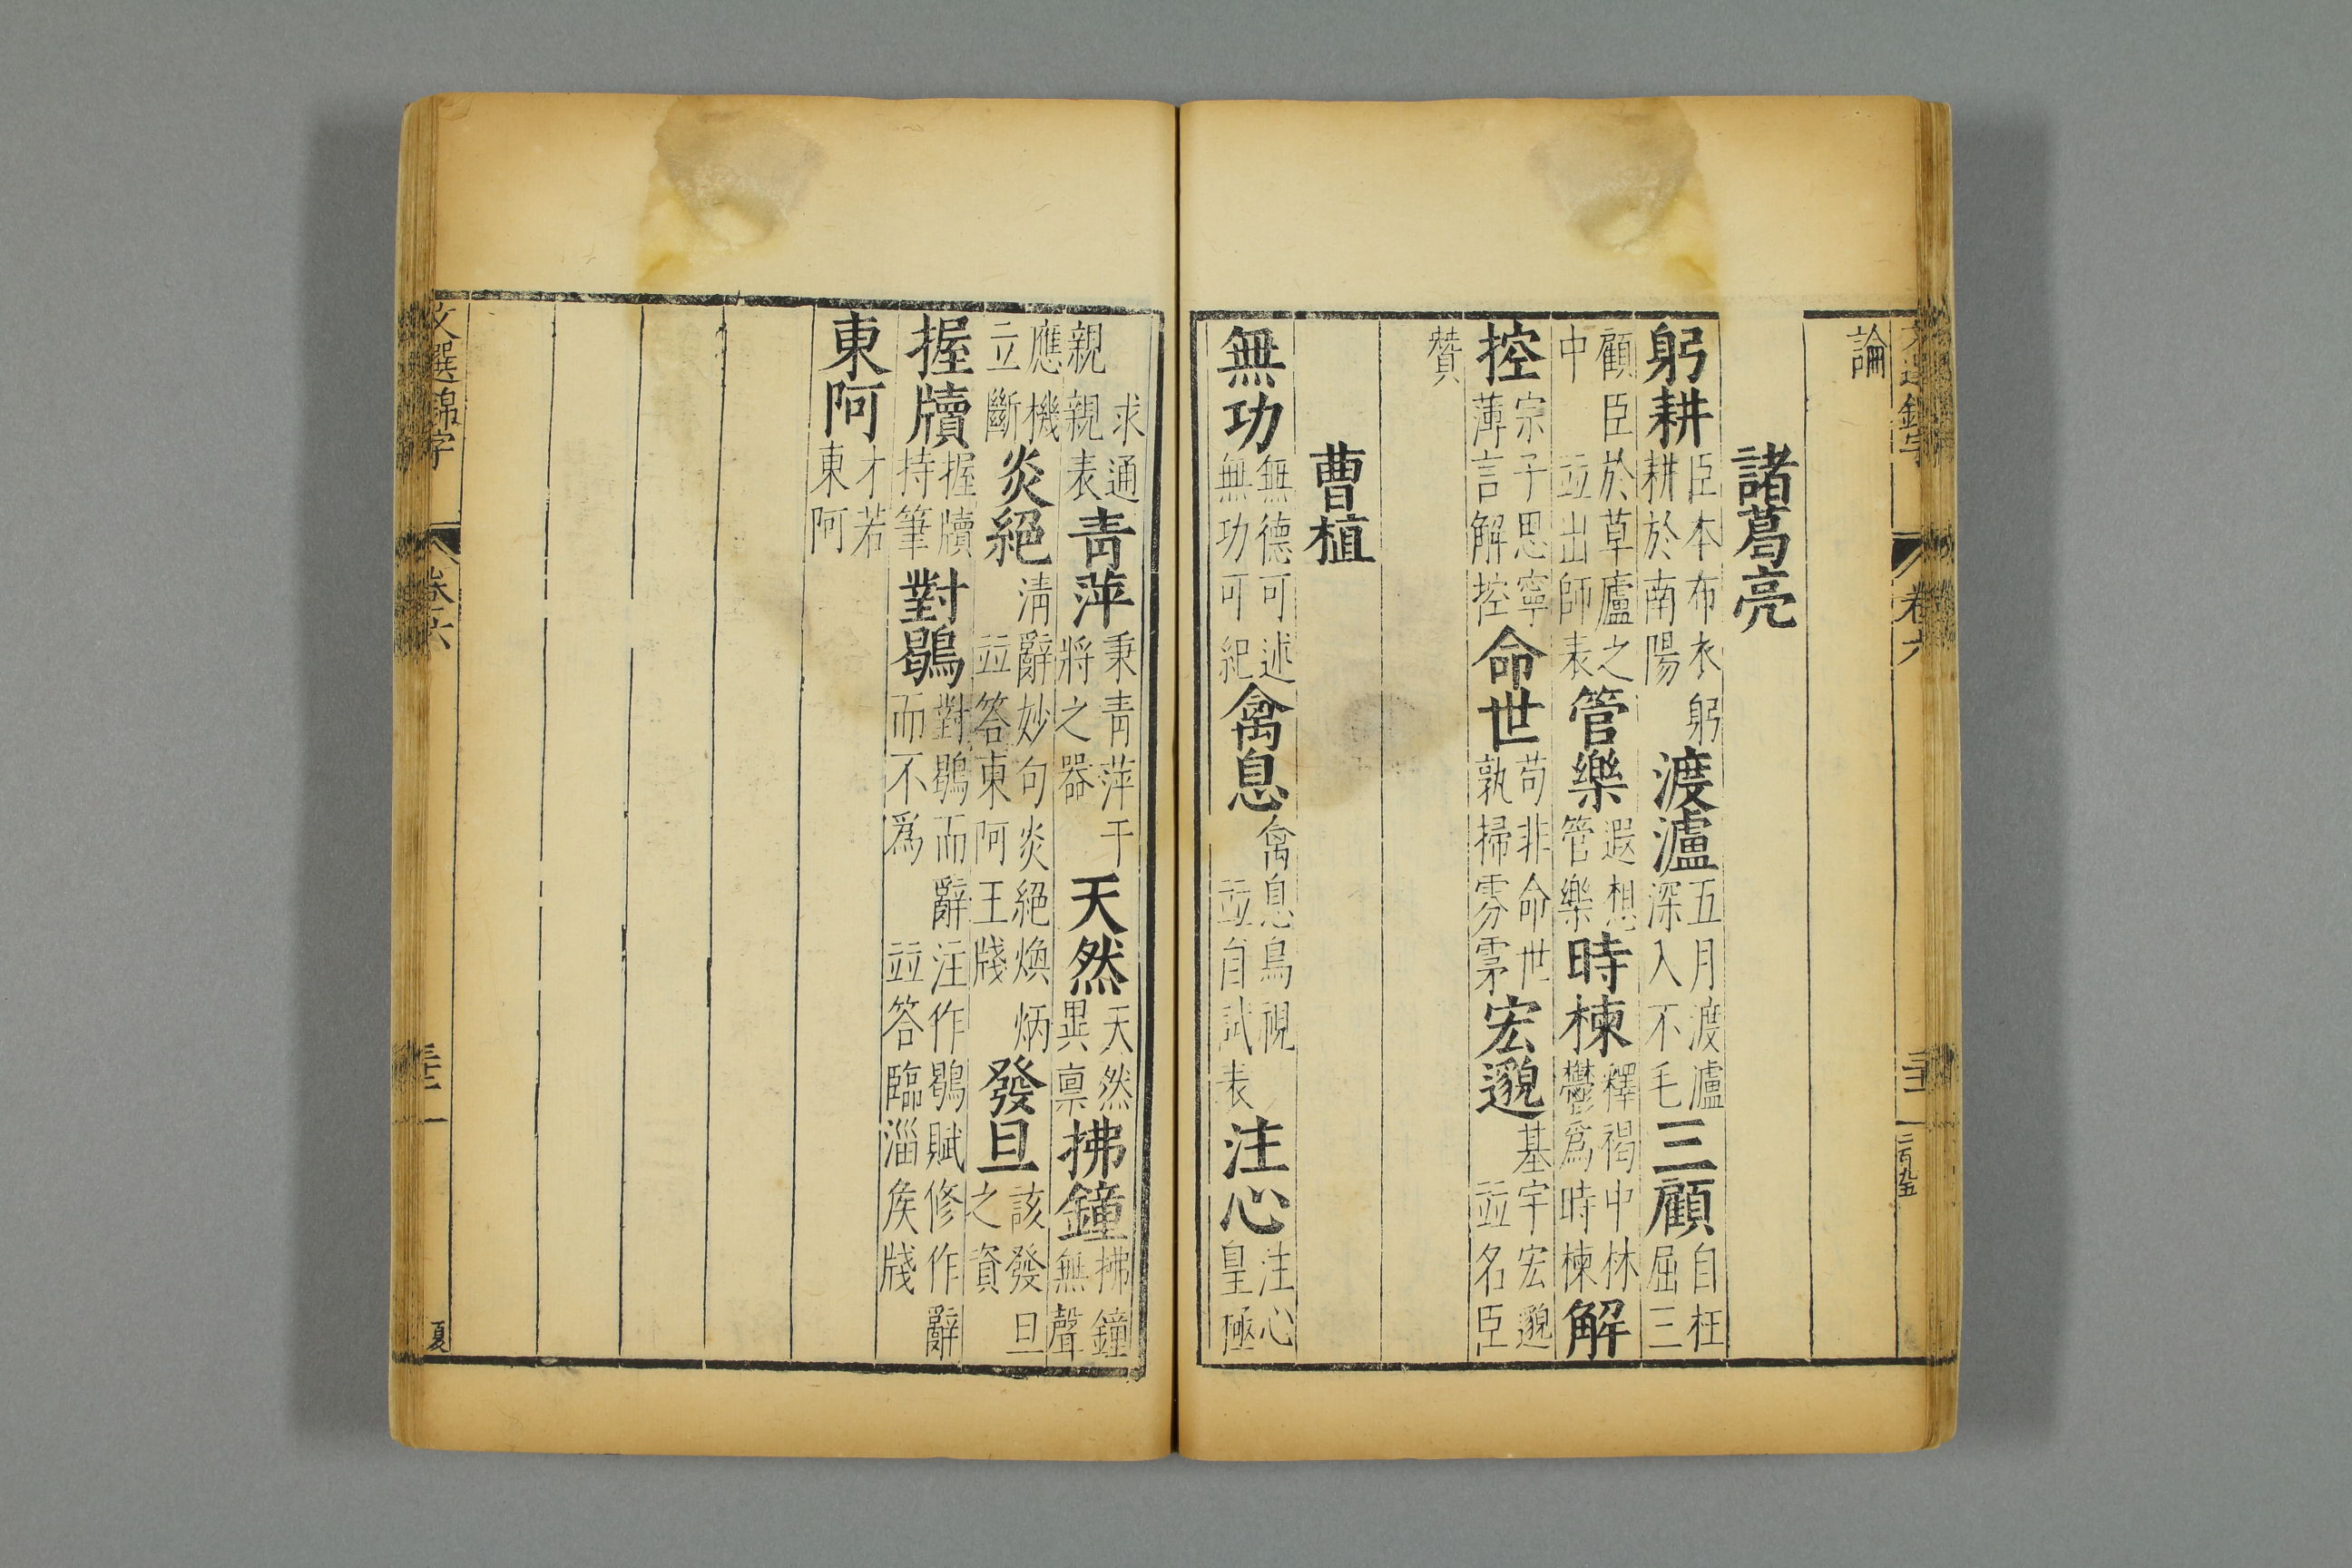 文選錦字 卷六 二百九五
論
諸葛亮
躬耕臣本布衣躬耕於南陽渡瀘五月渡瀘深入不毛三顧自枉屈三
顧臣於草廬之中竝出師表管樂遐想管樂時棟釋褐中林鬱爲時棟解
控宗子思寧薄言解控命世苟非命世孰掃雰雺宏邈基宇宏邈竝名臣
贊
曹植
無功無德可述無功可紀禽息禽息鳥視竝自試表注心注心皇極
求通親親表靑萍秉靑萍干將之器天然天然異稟拂鐘拂鐘無聲
應機立斷炎絕淸辭妙句炎絕煥炳竝答東阿王牋發旦該發旦之資
握牘握牘持筆對鶡對鶡而辭注作鶡賦修作辭而不爲竝答臨淄侯牋
東阿才若東阿
文選錦字 卷六 夏